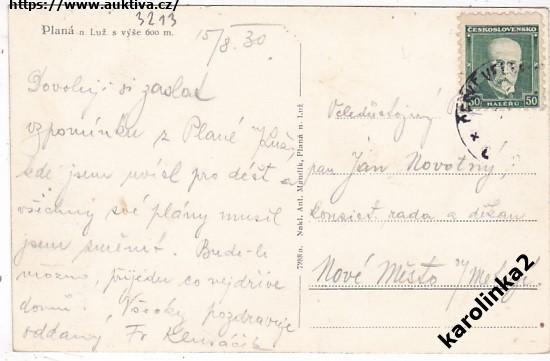 https://www.auktiva.cz/
3213
Planá n. Luž s výše 600 m.
15/8. 30
Dovoluji si zaslat
vzpomínku z Plané n/Luž.,
kde jsem uvízl pro déšť a
všechny své plány musil
jsem změnit. Bude-li
možno, přijedu co nejdříve
domů. Všecky pozdravuje
oddaný Fr.
7268 n. Nakl. Ant. Mendlík, Planá n. Luž
ČESKOSLOVENSKO
50 HALÉŘŮ 50
Veledůstojný
pan Jan Novotný,
konsist. rada a děkan
Nové Město n/Metují.
karolinka2